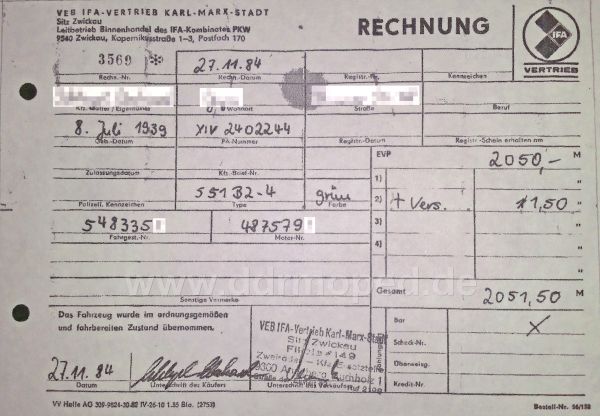 VEB IFA-VERTRIEB KARL-MARX-STADT
Sitz Zwickau
Leitbetrieb Binnenhandel des IFA-Kombinates PKW
9540 Zwickau, Kopernikusstraße 1–3, Postfach 170
RECHNUNG
IFA
VERTRIEB
3569 * 27.11.84
Rechn.-Nr. Rechn.-Datum Registr.-Nr. Kennzeichen
Kfz.-Halter / Eigentümer Wohnort Straße Beruf
8. Juli 1939 XIV 2402244
Geb.-Datum PA-Nummer Registr.-Datum Registr.-Schein erhalten am
Zulassungsdatum Kfz.-Brief-Nr.
EVP 2050,- M
1) "
S51 B2-4 grün
Polizeil. Kennzeichen Type Farbe
2) + Vers. 1,50 "
548335 487579
Fahrgest.-Nr. Motor-Nr.
3) "
4) "
www.ddrmoped.de
Sonstige Vermerke
Gesamt 2051,50 M
Das Fahrzeug wurde im ordnungsgemäßen
und fahrbereiten Zustand übernommen.
VEB IFA-Vertrieb Karl-Marx-Stadt
Sitz Zwickau
Filiale 149
Zweirader - Kfz-Ersatzteile
9300 Annaberg-Buchholz 1
Bar X
Scheck-Nr.
Überweisg.
Kredit-Nr.
27.11.84
Datum Unterschrift des Käufers Unterschrift des Verkäufers
VV Halle AG 309-9824-30-82 IV-26-10 1.35 Bio. (2753) Bestell-Nr. 56/188